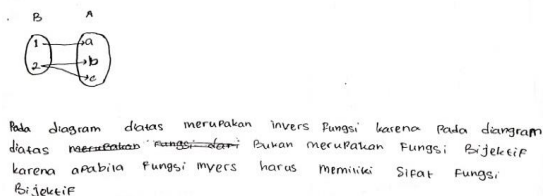 B A
1 a
2 b
c
Pada diagram diatas merupakan invers fungsi karena pada diangram
diatas merupakan fungsi dari Bukan merupakan fungsi Bijektif
karena apabila fungsi invers harus memiliki sifat fungsi
Bijektif